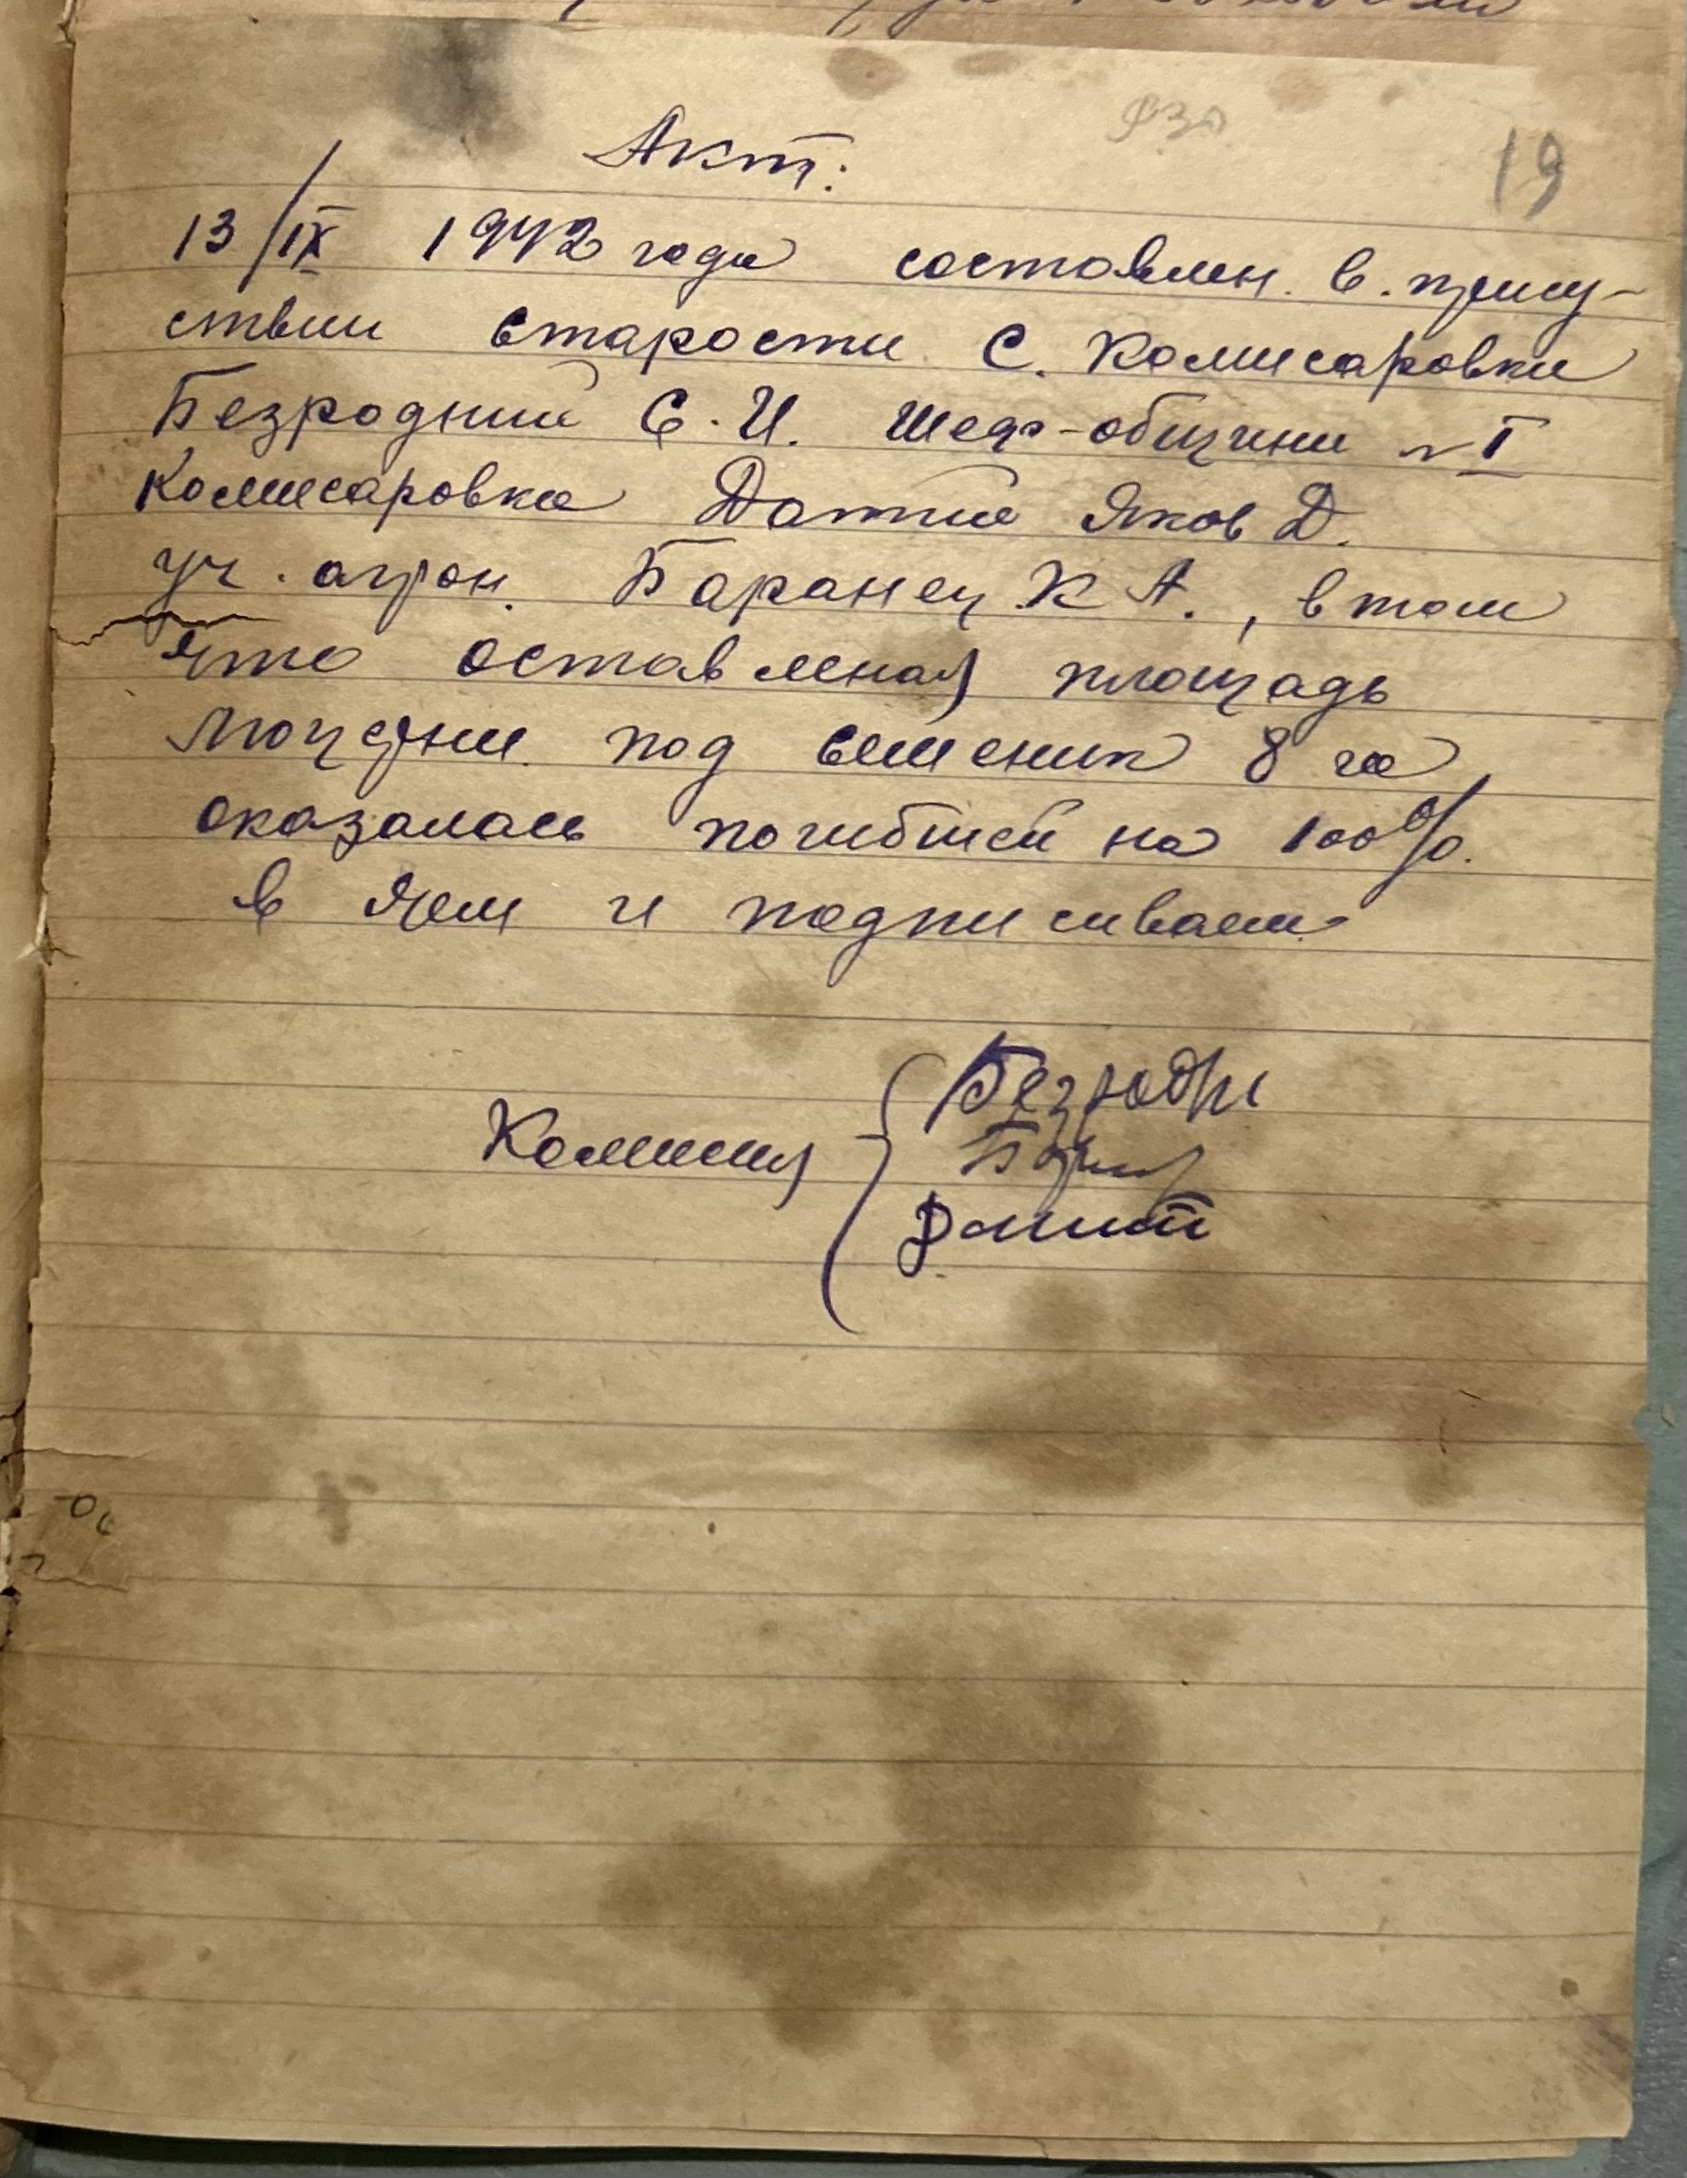 19
Акт:
13/IX 1942 года составлен. в. прису-
ствии старости С. Комисаровки
Безродний Є. И. Шеф-общини №I
Комисаровка Датий Яков Д.
уч. агрон. Баранец К А., в том
что оставленая площадь
люцерни под семеник 8 га,
оказалась погибшей на 100%.
в чем и подписиваем
Комисия
Безродн